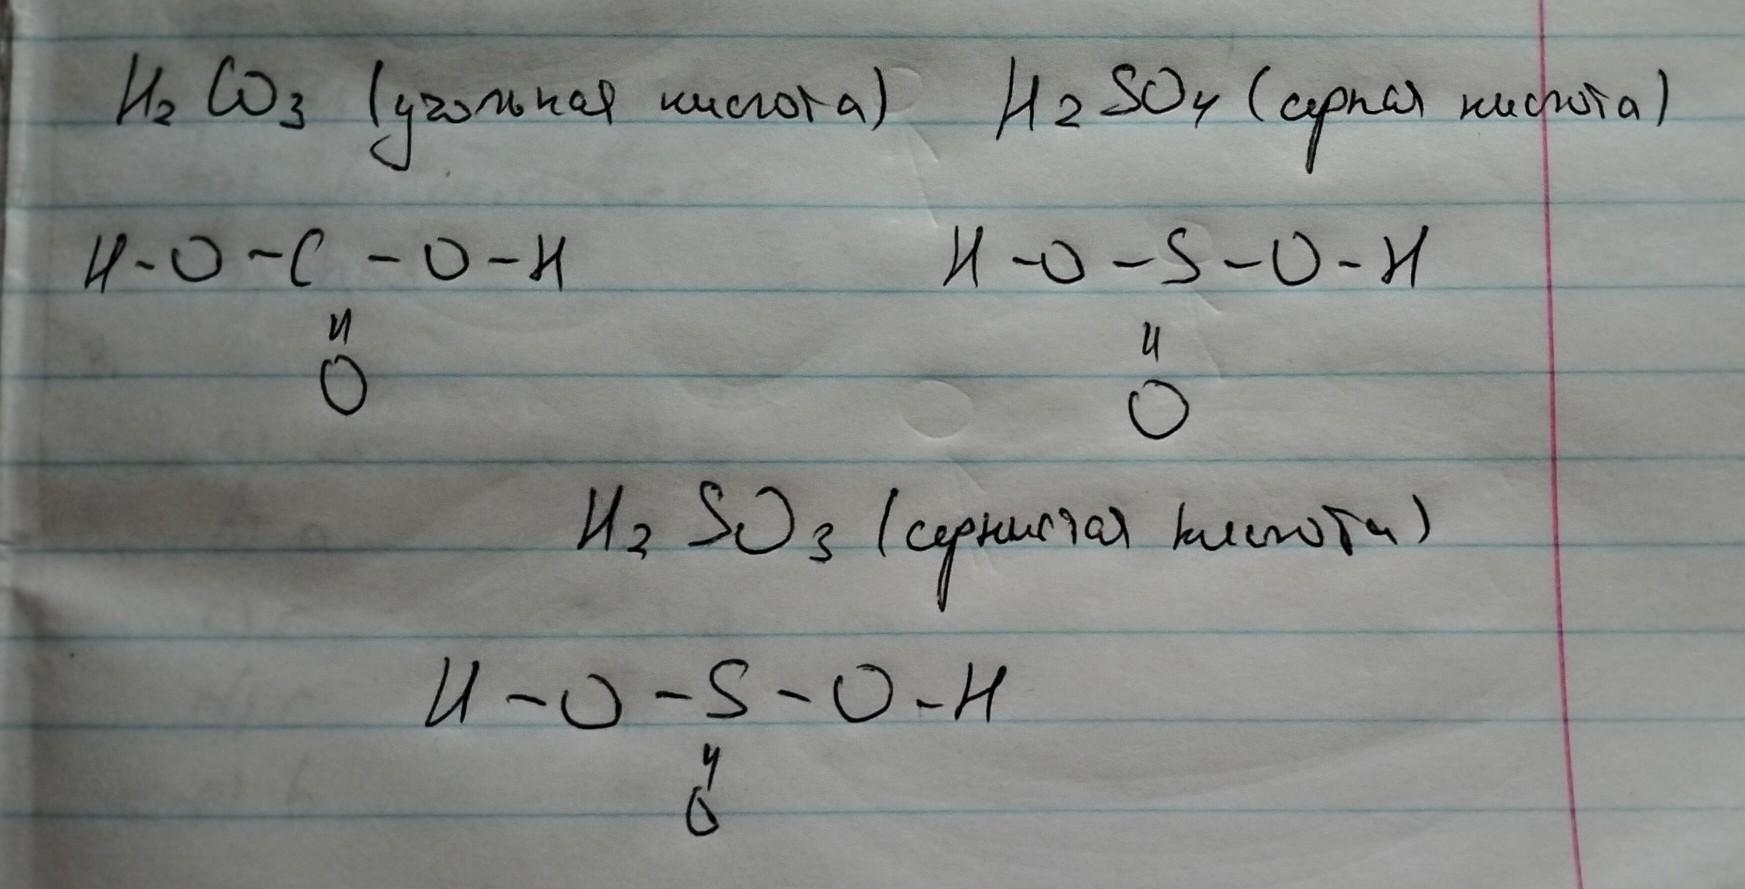 H₂CO₃ (угольная кислота) H₂SO₄ (серная кислота)
H-O-C-O-H H-O-S-O-H
״ ״
O O
H₂SO₃ (сернистая кислота)
H-O-S-O-H
״
O